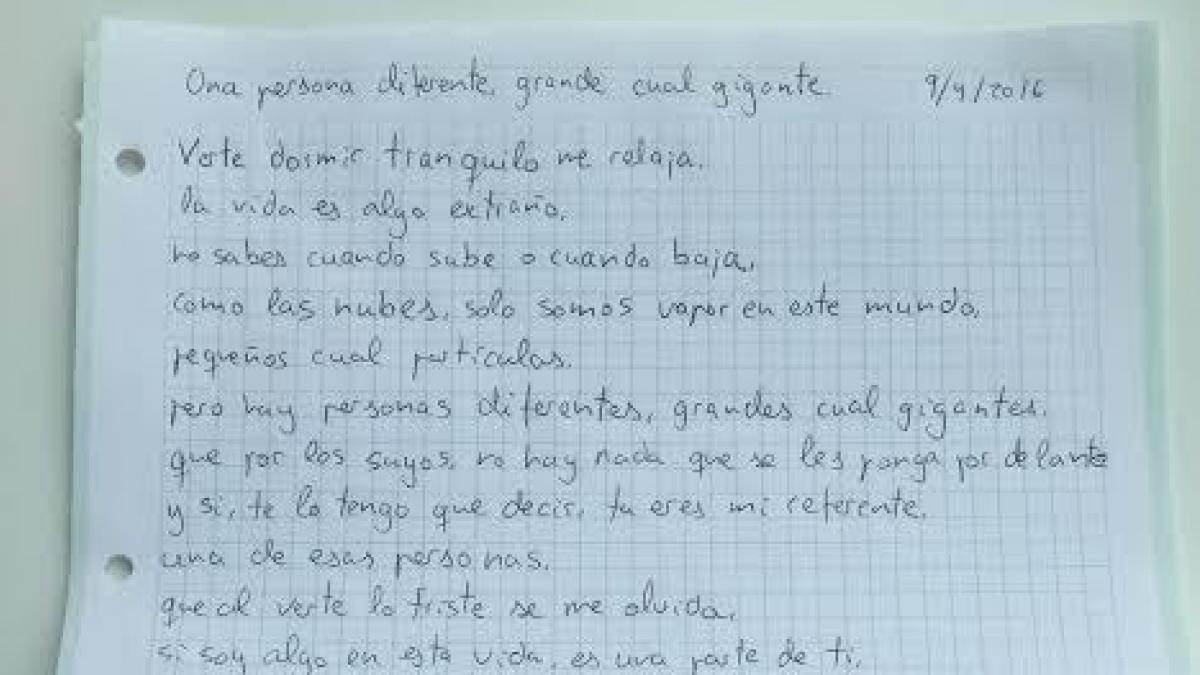 Una persona diferente, grande cual gigante. 9/4/2016
Verte dormir tranquilo me relaja.
la vida es algo extraño,
no sabes cuando sube o cuando baja,
como las nubes, solo somos vapor en este mundo,
pequeños cual partículas.
pero hay personas diferentes, grandes cual gigantes.
que por los suyos, no hay nada que se les ponga por delante
y si, te lo tengo que decir, tu eres mi referente.
una de esas personas,
que al verte lo triste se me olvida,
si soy algo en esta vida, es una parte de ti,